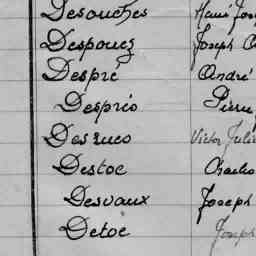 Desouches
Despouez Joseph
Despré André
Desprès Pierre
Desruco Victor Julie
Destoc Charles
Desvaux Joseph
Detoc Joseph